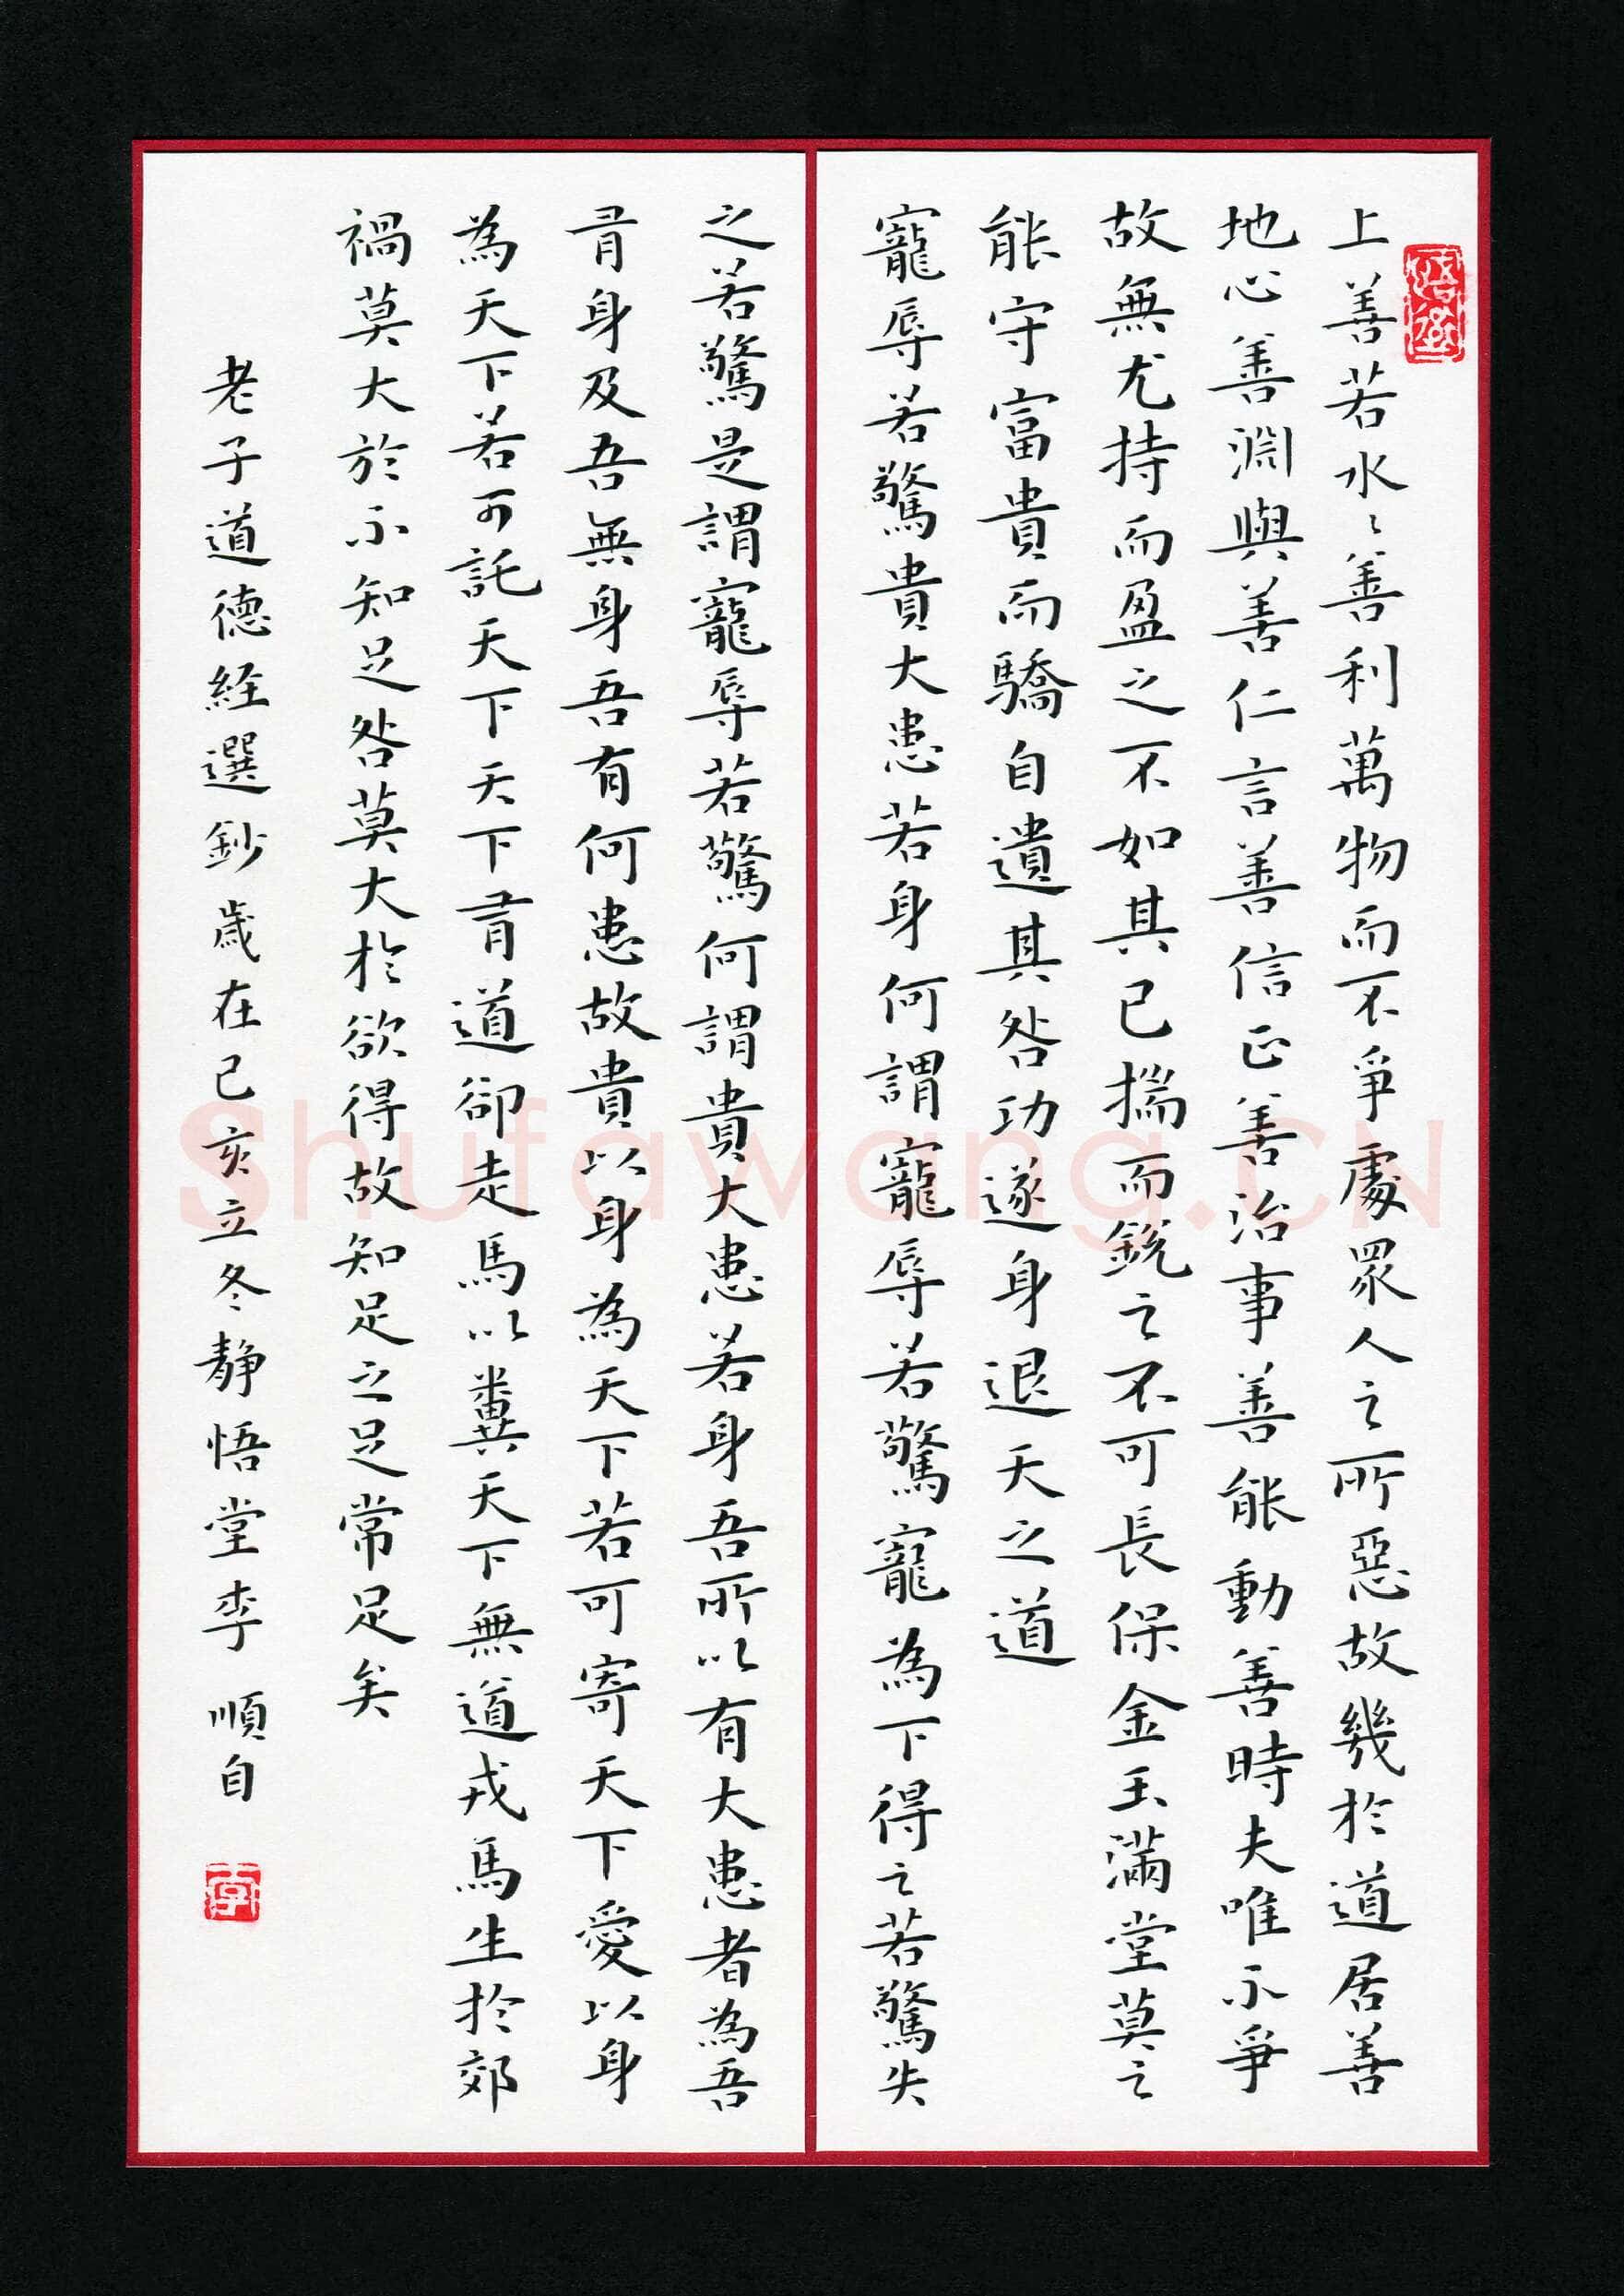 上善若水〻善利萬物而不爭處眾人之所惡故幾於道居善
地心善淵與善仁言善信正善治事善能動善時夫唯不爭
故無尤持而盈之不如其已揣而銳之不可長保金玉滿堂莫之
能守富貴而驕自遺其咎功遂身退天之道
寵辱若驚貴大患若身何謂寵辱若驚寵為下得之若驚失
之若驚是謂寵辱若驚何謂貴大患若身吾所以有大患者為吾
有身及吾無身吾有何患故貴以身為天下若可寄天下愛以身
為天下若可託天下天下有道卻走馬以糞天下無道戎馬生於郊
禍莫大於不知足咎莫大於欲得故知足之足常足矣
老子道德経選鈔歲在己亥立冬靜悟堂李順自
李
Shufawang.CN